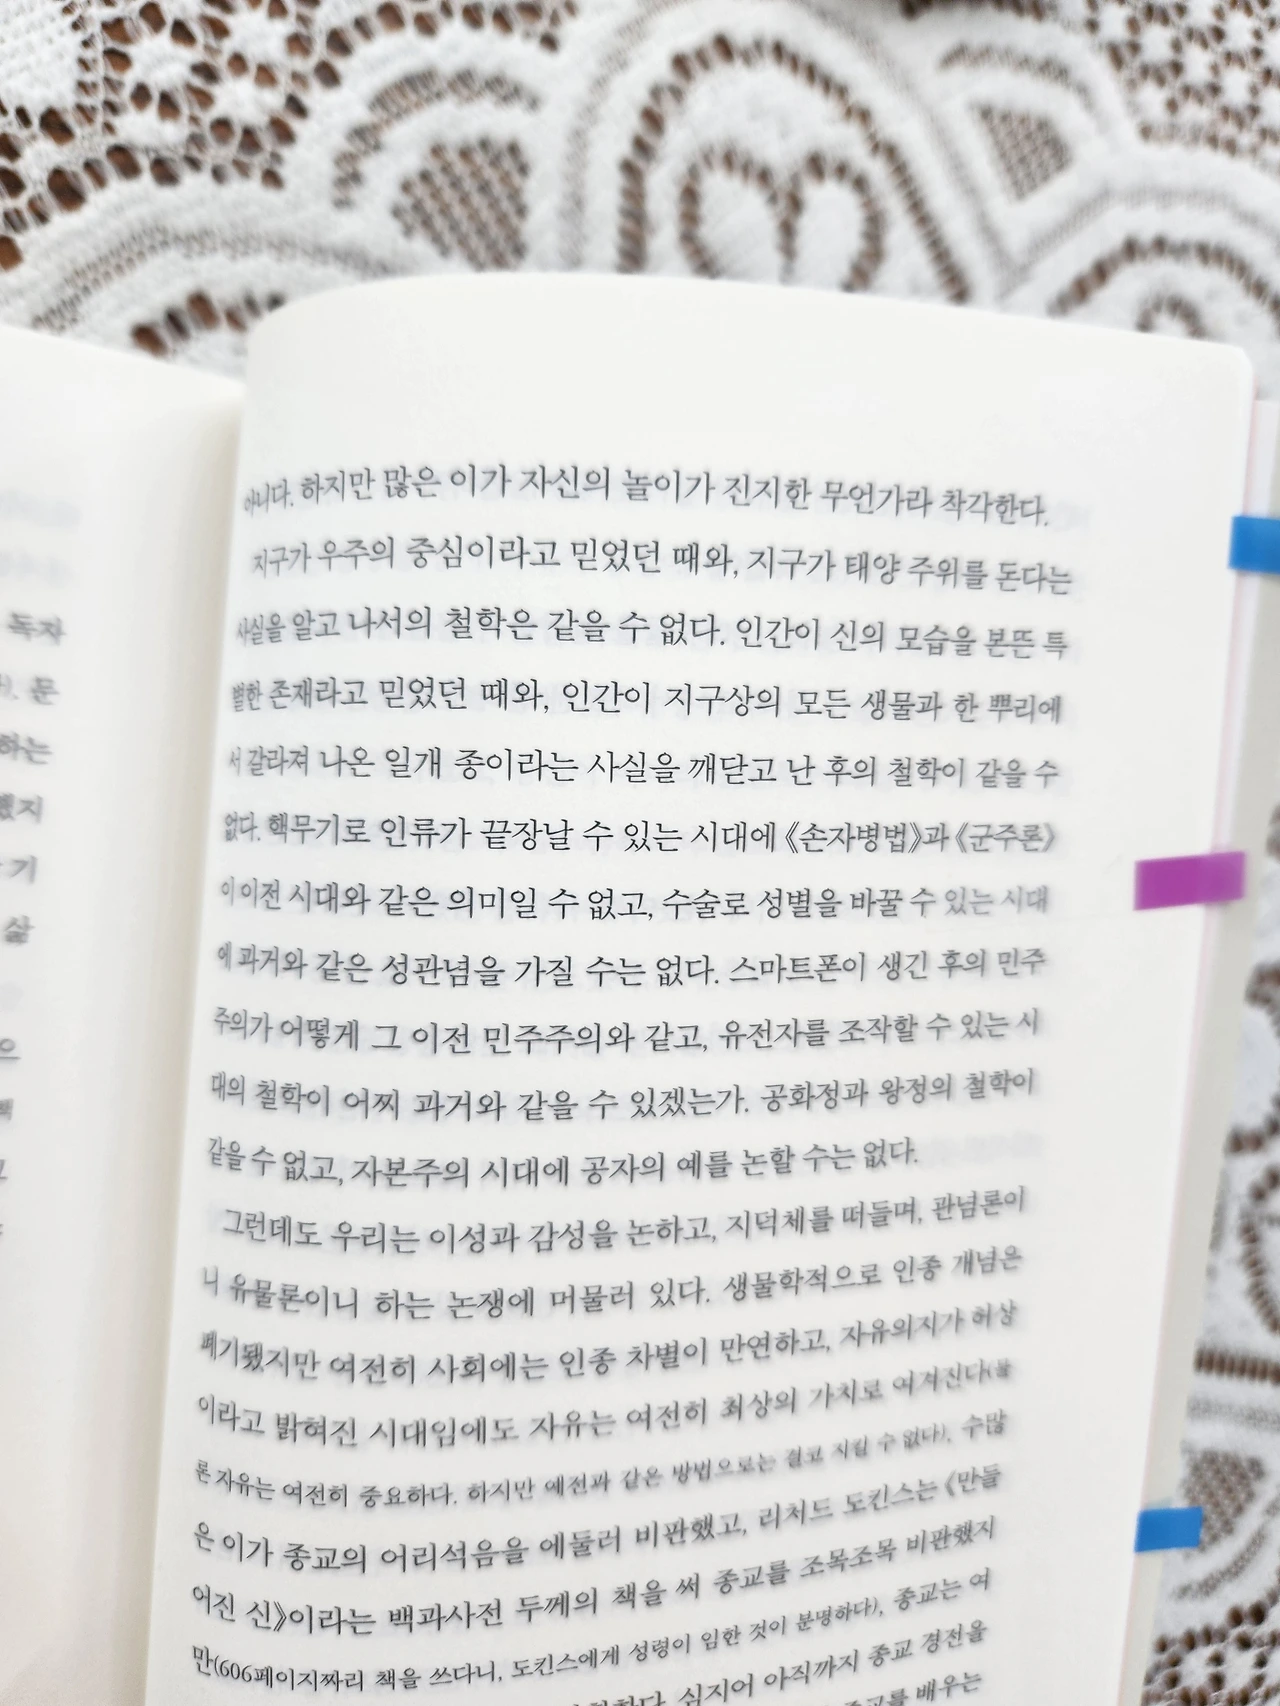 독자
하는
기
삶
아니다. 하지만 많은 이가 자신의 놀이가 진지한 무언가라 착각한다.
지구가 우주의 중심이라고 믿었던 때와, 지구가 태양 주위를 돈다는
사실을 알고 나서의 철학은 같을 수 없다. 인간이 신의 모습을 본뜬 특
별한 존재라고 믿었던 때와, 인간이 지구상의 모든 생물과 한 뿌리에
서 갈라져 나온 일개 종이라는 사실을 깨닫고 난 후의 철학이 같을 수
없다. 핵무기로 인류가 끝장날 수 있는 시대에 《손자병법》과 《군주론》
이 이전 시대와 같은 의미일 수 없고, 수술로 성별을 바꿀 수 있는 시대
에 과거와 같은 성관념을 가질 수는 없다. 스마트폰이 생긴 후의 민주
주의가 어떻게 그 이전 민주주의와 같고, 유전자를 조작할 수 있는 시
대의 철학이 어찌 과거와 같을 수 있겠는가. 공화정과 왕정의 철학이
같을 수 없고, 자본주의 시대에 공자의 예를 논할 수는 없다.
그런데도 우리는 이성과 감성을 논하고, 지덕체를 떠들며, 관념론이
니 유물론이니 하는 논쟁에 머물러 있다. 생물학적으로 인종 개념은
폐기됐지만 여전히 사회에는 인종 차별이 만연하고, 자유의지가 허상
이라고 밝혀진 시대임에도 자유는 여전히 최상의 가치로 여겨진다(물
론 자유는 여전히 중요하다. 하지만 예전과 같은 방법으로는 결코 지킬 수 없다). 수많
은 이가 종교의 어리석음을 에둘러 비판했고, 리처드 도킨스는 《만들
어진 신》이라는 백과사전 두께의 책을 써 종교를 조목조목 비판했지
만(606페이지짜리 책을 쓰다니, 도킨스에게 성령이 임한 것이 분명하다), 종교는 여
심지어 아직까지 종교 경전을
배우는